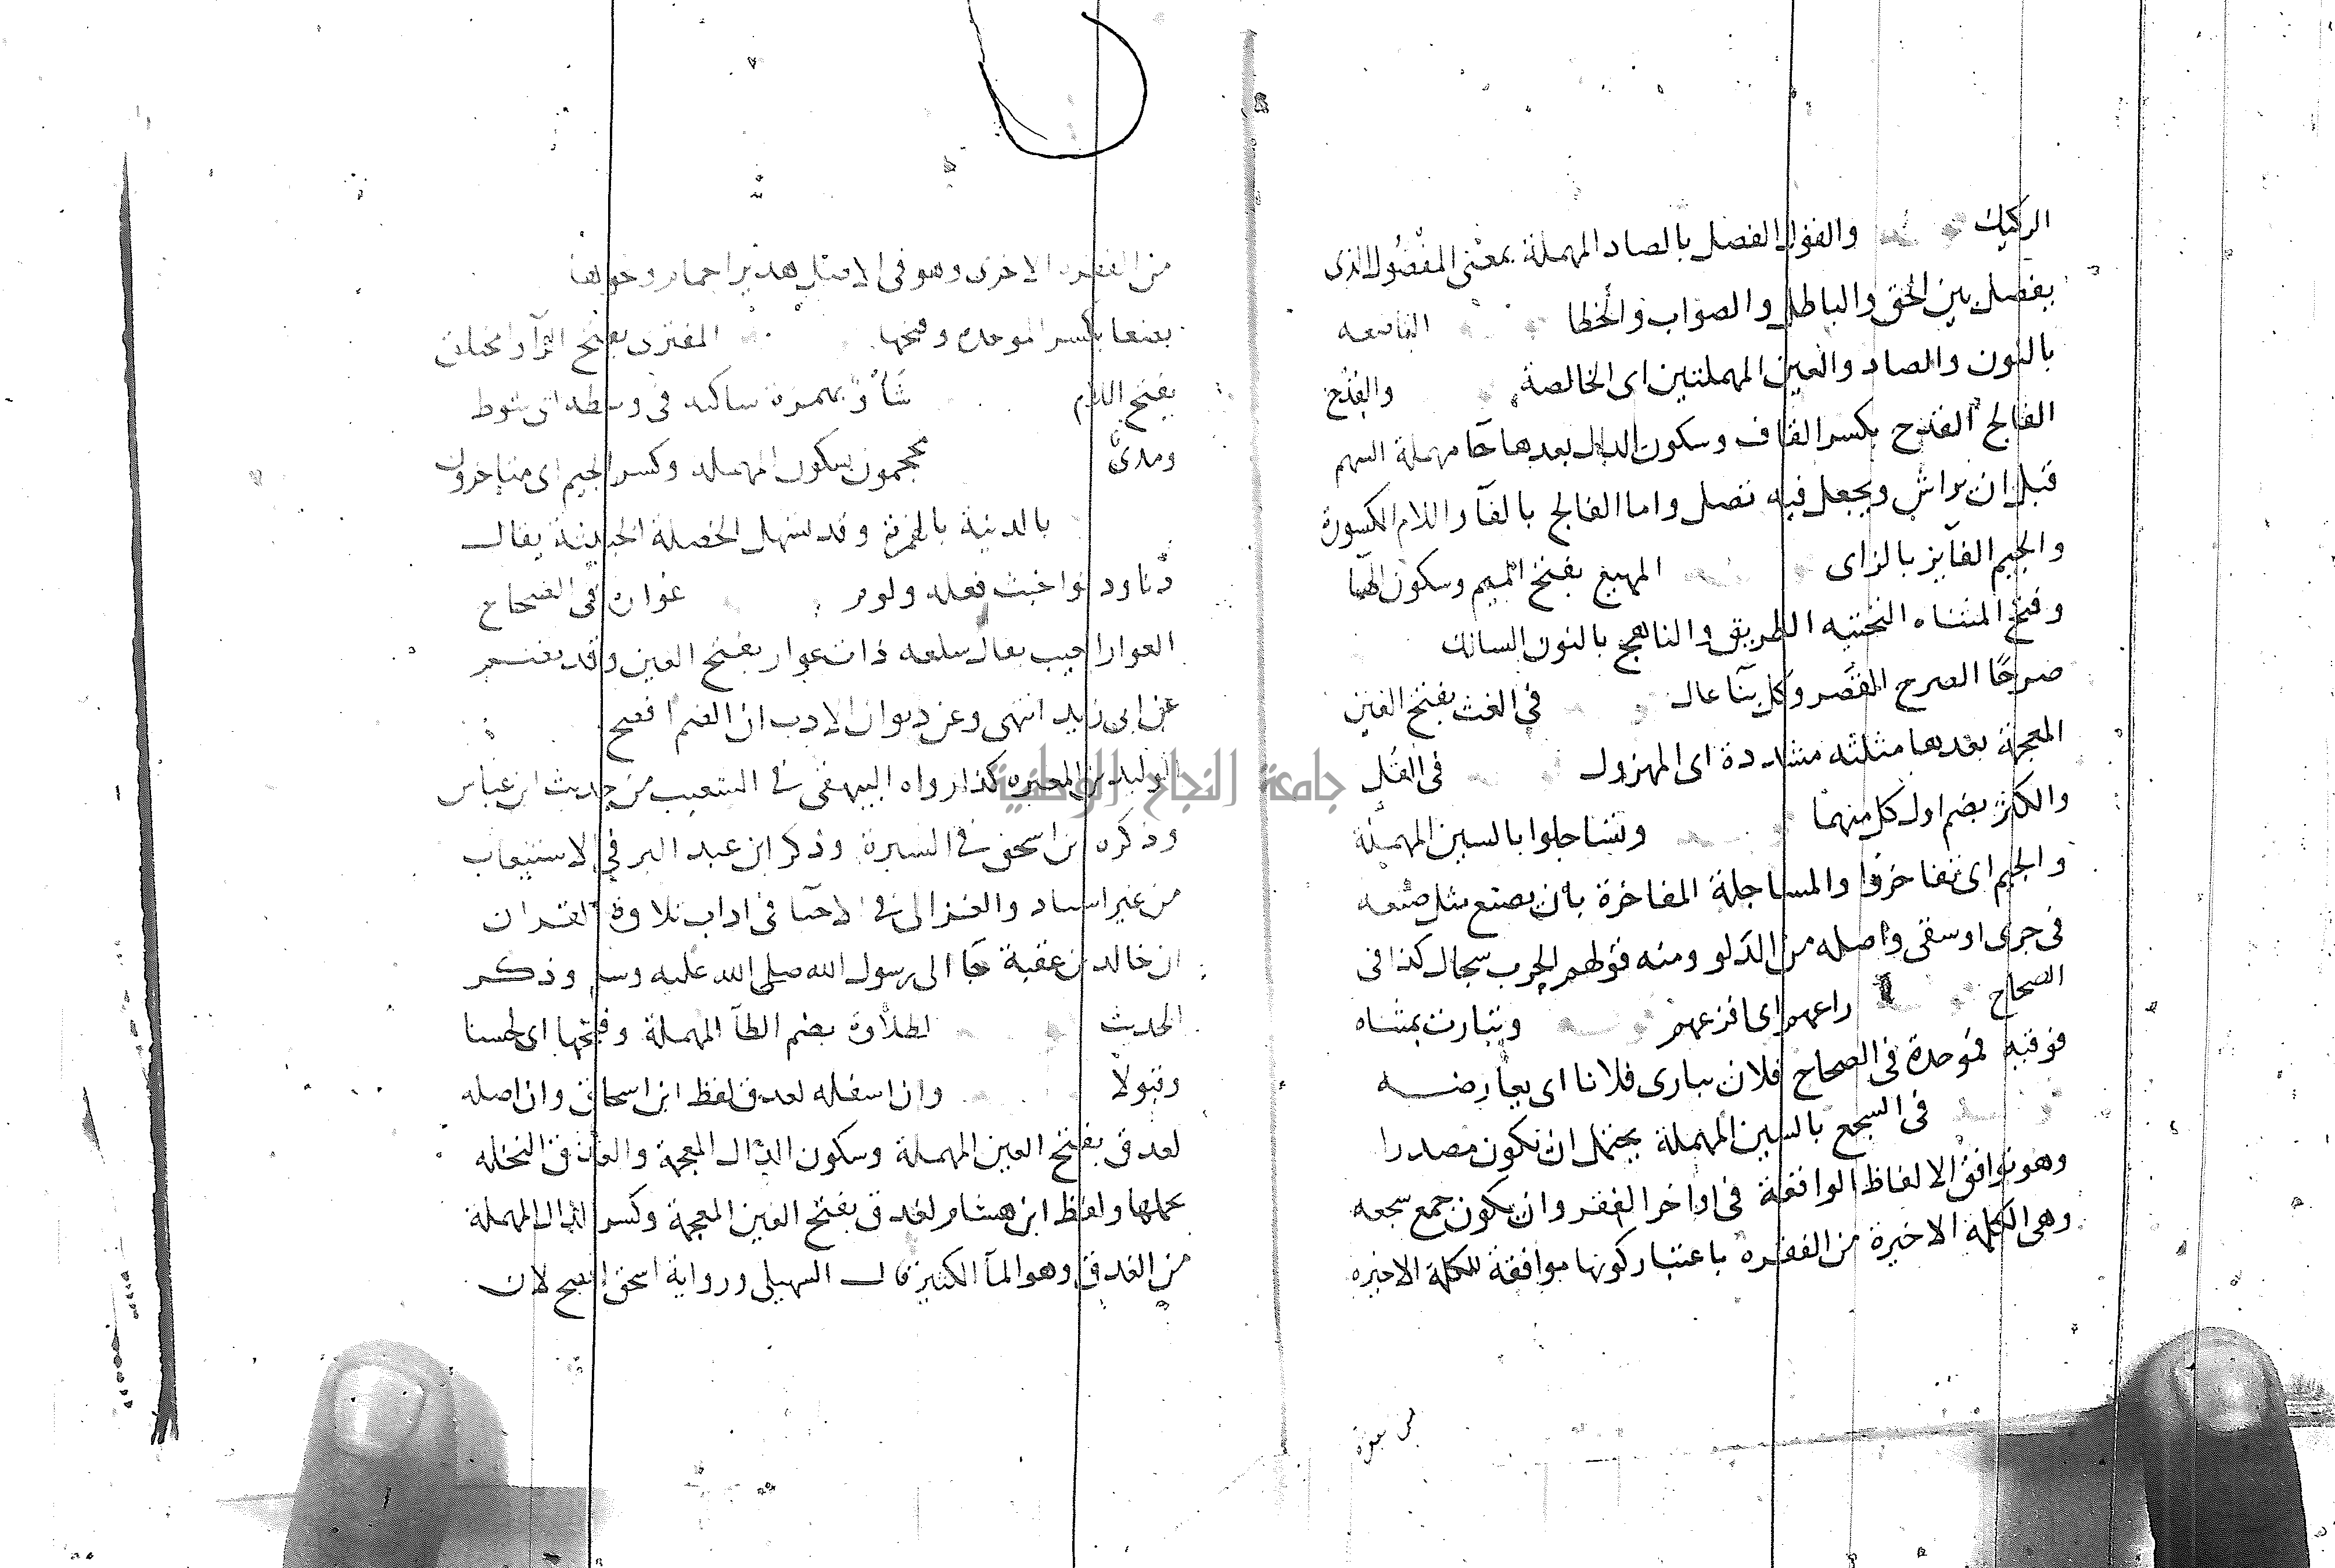 الركيك والقول الفصل بالصاد المهملة بمعنى المفصول الذى
يفصل بين الحق والباطل والصواب والخطا الناصعه
بالنون والصاد والعين المهملتين اى الخالصة والقدح
الفالج القدح بكسر القاف وسكون الدال بعدها حا مهملة السهم
قبل ان يراش ويجعل فيه نصل واما الفالج بالفآ واللام المكسورة
والجيم الفايز بالزاى المهيع بفتح الميم وسكون الها
وفتح المثناه التحتيه الطريق والناهج بالنون السالك
صرحًا الصرح القصر وكل بنآ عال فى الغث بفتح الغين
المعجمة بعدها مثلثه مشددة اى المهزول فى القل
والكثر بضم اول كل منهما وتساجلوا بالسين المهملة
والجيم اى تفاخروا والمساجلة المفاخرة بان يصنع مثل صنعه
فى جرى او سقى واصله من الدلو ومنه قولهم الحرب سجال كذا فى
الصحاح راعهم اى افزعهم وتبارت بمثناه
فوقيه فموحدة فى الصحاح فلان يبارى فلانا اى يعارضه
فى السجع بالسين المهملة يحتمل ان تكون مصدرا
وهو توافق الالفاظ الواقعة فى اواخر الفقر وان يكون جمع سجعه
وهى الكلمة الاخيرة من الفقره باعتبار كونها موافقة للكلمة الاخيره
من الفقره الاخرى وهو فى الامثل
بكسر الموحده وفتحها المفترى بفتح الرآ
بفتح اللام شأو بهمزة ساكنه فى وسطه اى شوط
ومدىً محجمون بسكون المهمله وكسر الجيم اى متاخرون
بالدنية بالهمزة وقد تسهل الخصلة الخبيثة يقال
خبث فعله ولوم عوار فى الصحاح
العوار العيب يقال سلعه ذات عوار بفتح العين وقد يضم
عن ابى زيد انتهى وعن ديوان الادب ان الضم افصح
الوليد بن المغيره كذا رواه البيهقى فى الشعب من حديث ابن عباس
وذكره ابن اسحق فى السيرة وذكر ابن عبد البر فى الاستيعاب
من غير اسناد والغزالى فى الاحيا فى اداب تلاوة القران
ان خالد بن عقبة جا الى رسول الله صلى الله عليه وسلم وذكر
الحديث لطلاوة بضم الطآ المهملة وفتحها اى لحسنا
وقبولا وان اسفله لعدق لفظ ابن اسحاق وان اصله
لعدق بفتح العين المهملة وسكون الذال المعجمة والعذق النخله
بحملها ولفظ ابن هشام لغدق بفتح الغين المعجمة وكسر الدال المهملة
من الغدق وهو المآ الكثير قال السهيلى ورواية اسحق افصح لان
جامعة النجاح الوطنية